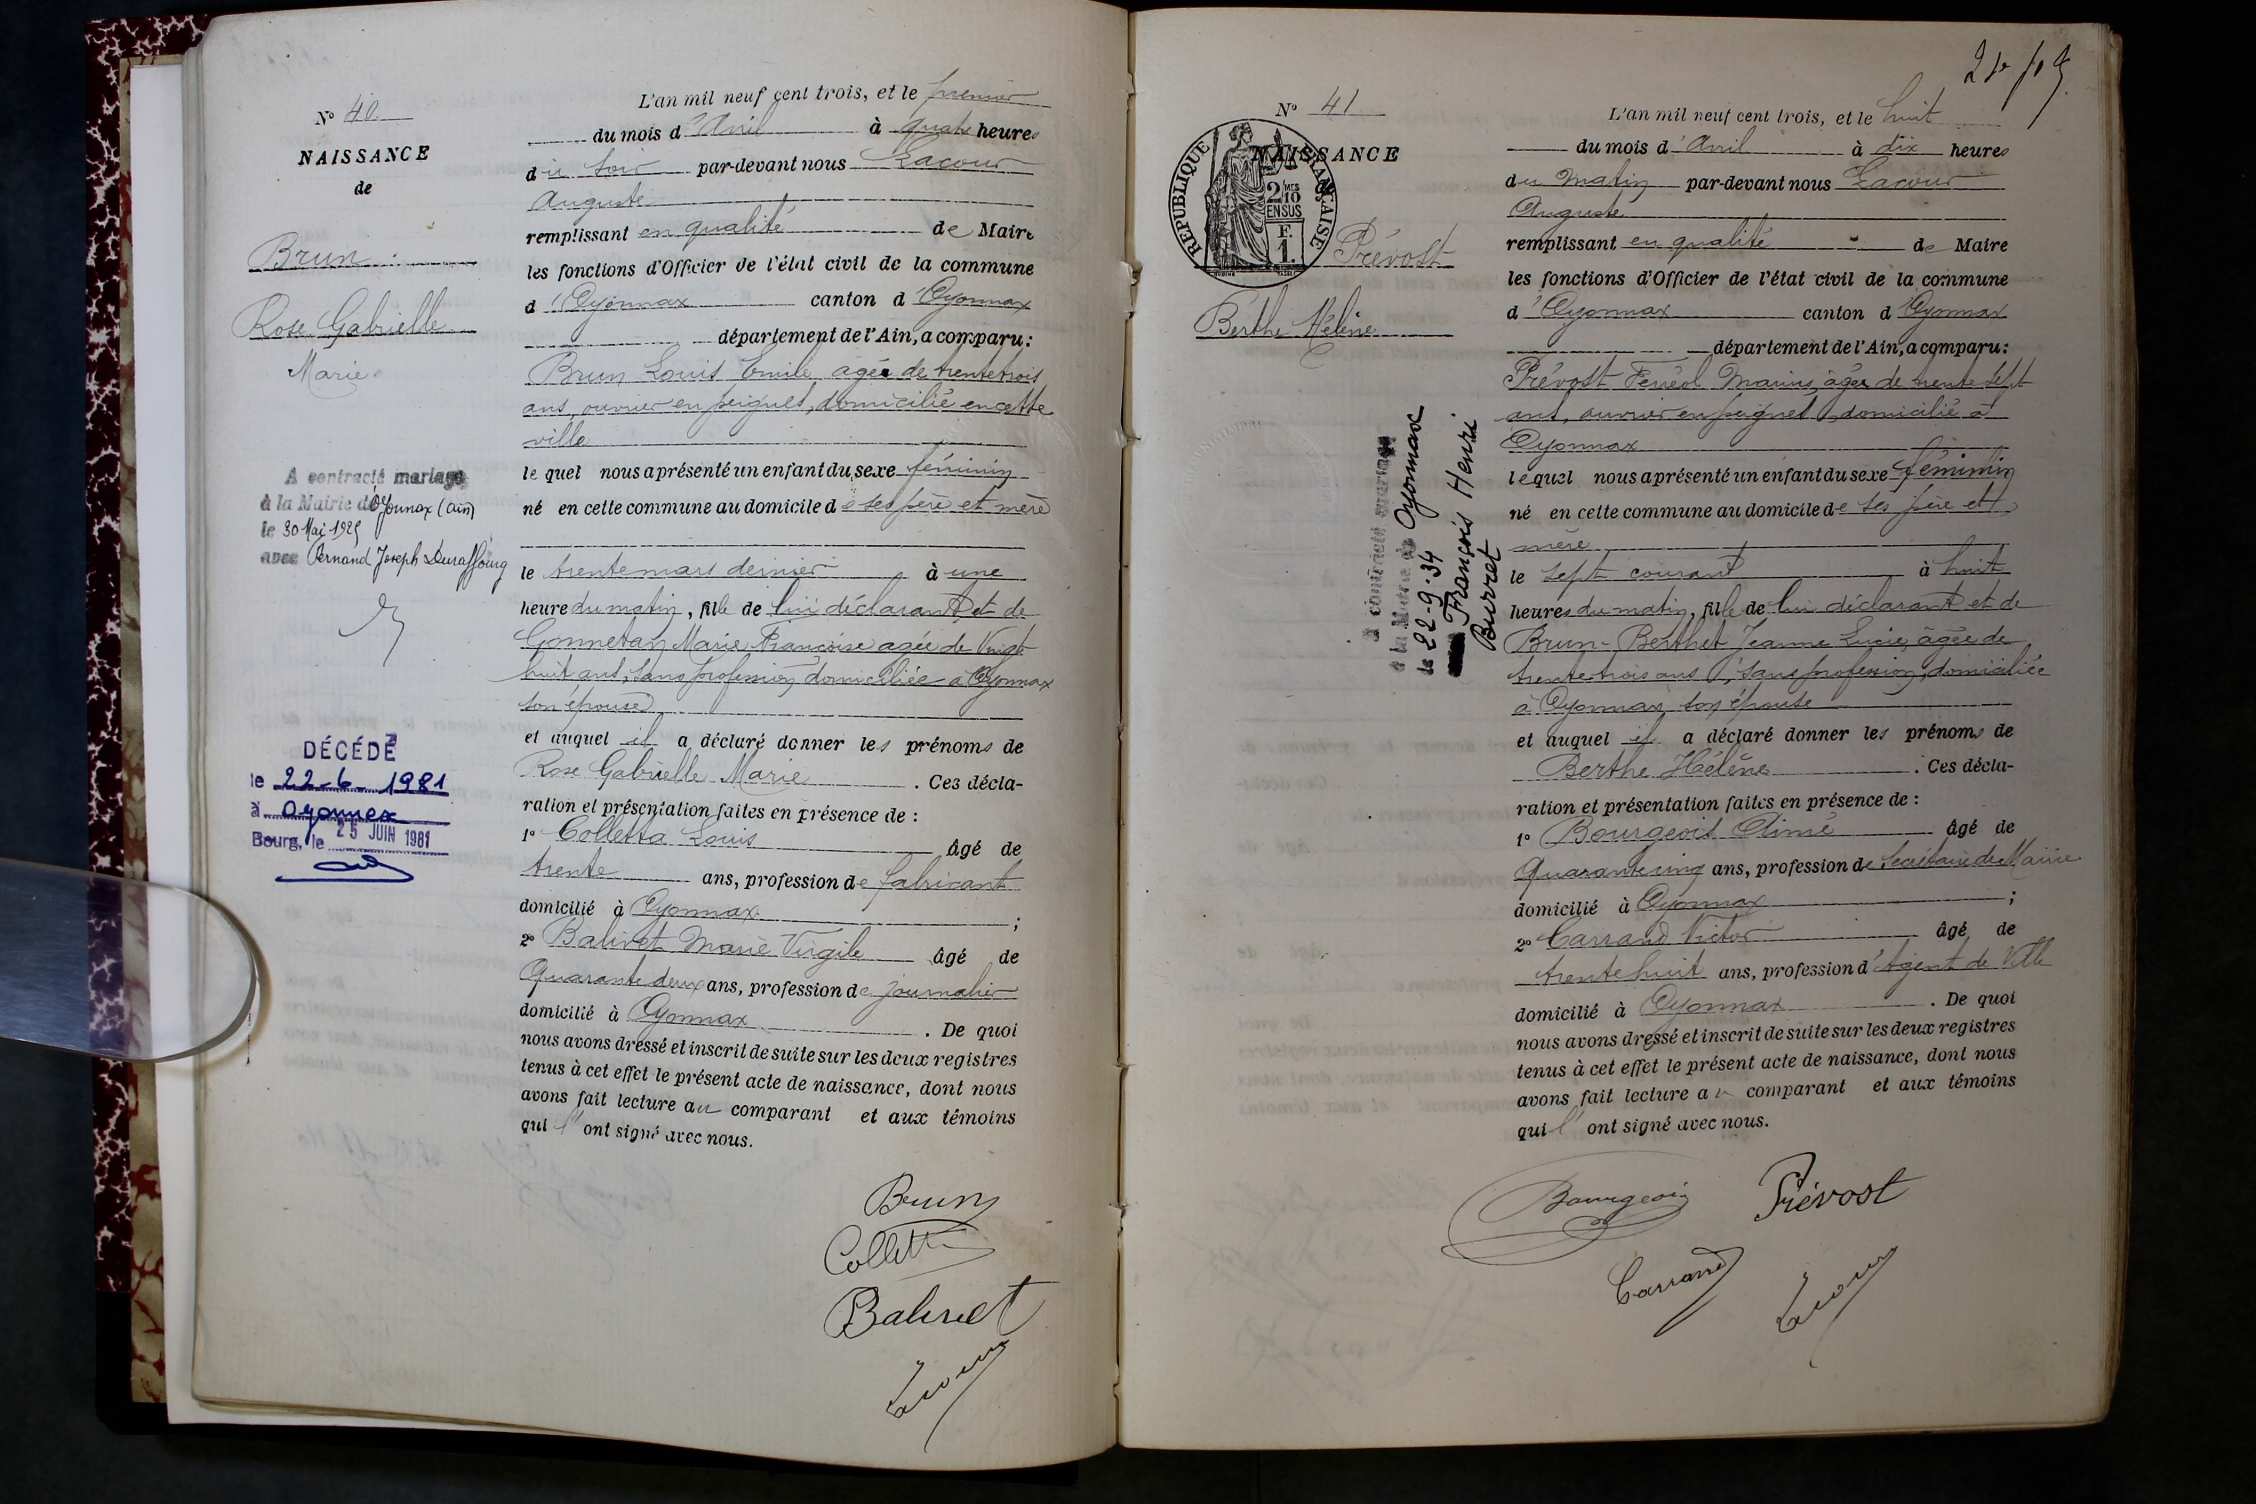 N° 40
NAISSANCE
de
Brun
Rose Gabrielle
Marie
A contracté mariage
à la Mairie de Oyonnax (Ain)
le 30 Mai 1925
avec Fernand Joseph Duraffourg
DÉCÉDÉ
le 22-6-1981
à Oyonnax
Bourg, le 25 JUIN 1981
L'an mil neuf cent trois, et le premier
du mois d'Avril à quatre heures
du soir par-devant nous Lacour
Auguste
remplissant en qualité de Maire
les fonctions d'Officier de l'état civil de la commune
d'Oyonnax canton d'Oyonnax
département de l'Ain, a comparu:
Brun Louis Emile, agé de trente trois
ans, ouvrier en peignes, domicilié en cette
ville
lequel nous a présenté un enfant du sexe féminin
né en cette commune au domicile de ses père et mère
le trente mars dernier à une
heure du matin, fille de lui déclarant et de
Gonnetan Marie Françoise agée de Vingt
huit ans, sans profession, domiciliée à Oyonnax
son épouse
et auquel il a déclaré donner les prénoms de
Rose Gabrielle Marie. Ces décla-
ration et présentation faites en présence de :
1° Colletta Louis âgé de
trente ans, profession de fabricant
domicilié à Oyonnax ;
2° Balivet Marie Virgile âgé de
Quarante deux ans, profession de journalier
domicilié à Oyonnax. De quoi
nous avons dressé et inscrit de suite sur les deux registres
tenus à cet effet le présent acte de naissance, dont nous
avons fait lecture au comparant et aux témoins
qui l'ont signé avec nous.
Brun
Colletta
Balivet
Lacour
N° 41
NAISSANCE
RÉPUBLIQUE FRANÇAISE
2/10 MES
EN SUS
F.
1.
Prévost
Berthe Hélène
A contracté mariage
à la Mairie de Oyonnax
le 22-9-34
François Henri
Burret
L'an mil neuf cent trois, et le huit
du mois d'Avril à dix heures
du matin par-devant nous Lacour
Auguste
remplissant en qualité de Maire
les fonctions d'Officier de l'état civil de la commune
d'Oyonnax canton d'Oyonnax
département de l'Ain, a comparu:
Prévost Ferréol Marius, âgé de trente sept
ans, ouvrier en peignes, domicilié à
Oyonnax
lequel nous a présenté un enfant du sexe féminin
né en cette commune au domicile de ses père et
mère
le sept courant à huit
heures du matin, fille de lui déclarant et de
Brun-Berthet Jeanne Lucie, âgée de
trente trois ans, sans profession, domiciliée
à Oyonnax, son épouse
et auquel il a déclaré donner les prénoms de
Berthe Hélène. Ces décla-
ration et présentation faites en présence de :
1° Bourgeois Aimé âgé de
Quarante cinq ans, profession de Secrétaire de Mairie
domicilié à Oyonnax ;
2° Carrand Victor âgé de
trente huit ans, profession d'Agent de Ville
domicilié à Oyonnax. De quoi
nous avons dressé et inscrit de suite sur les deux registres
tenus à cet effet le présent acte de naissance, dont nous
avons fait lecture au comparant et aux témoins
qui l'ont signé avec nous.
Bourgeois
Prévost
Carrand
Lacour